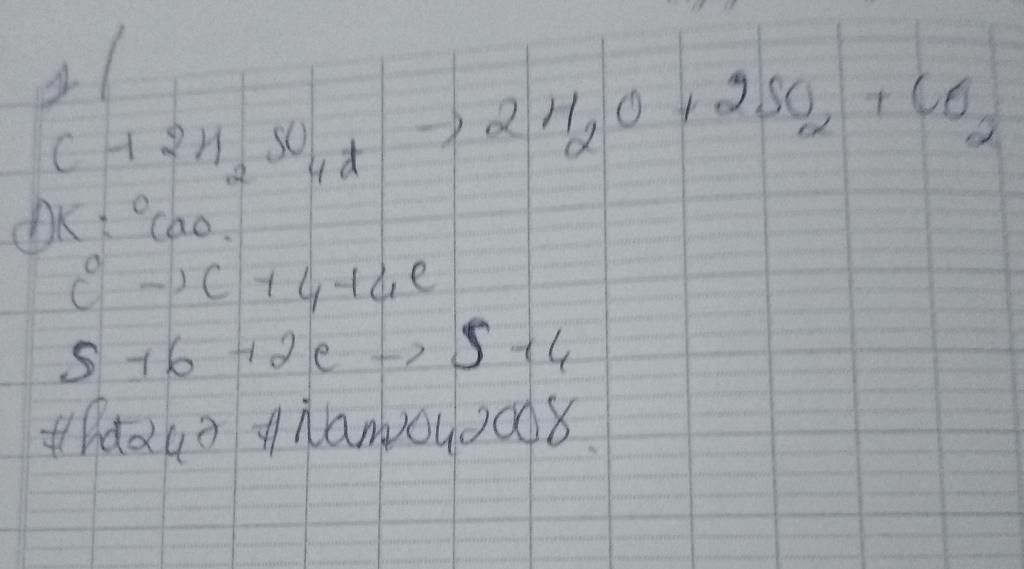 a/
C + 2H₂SO₄đ → 2H₂O + 2SO₂ + CO₂
ĐK: ⁰cao.
C⁰ → C +4 + 4e
S +6 + 2e → S +4
#Nam2042008.